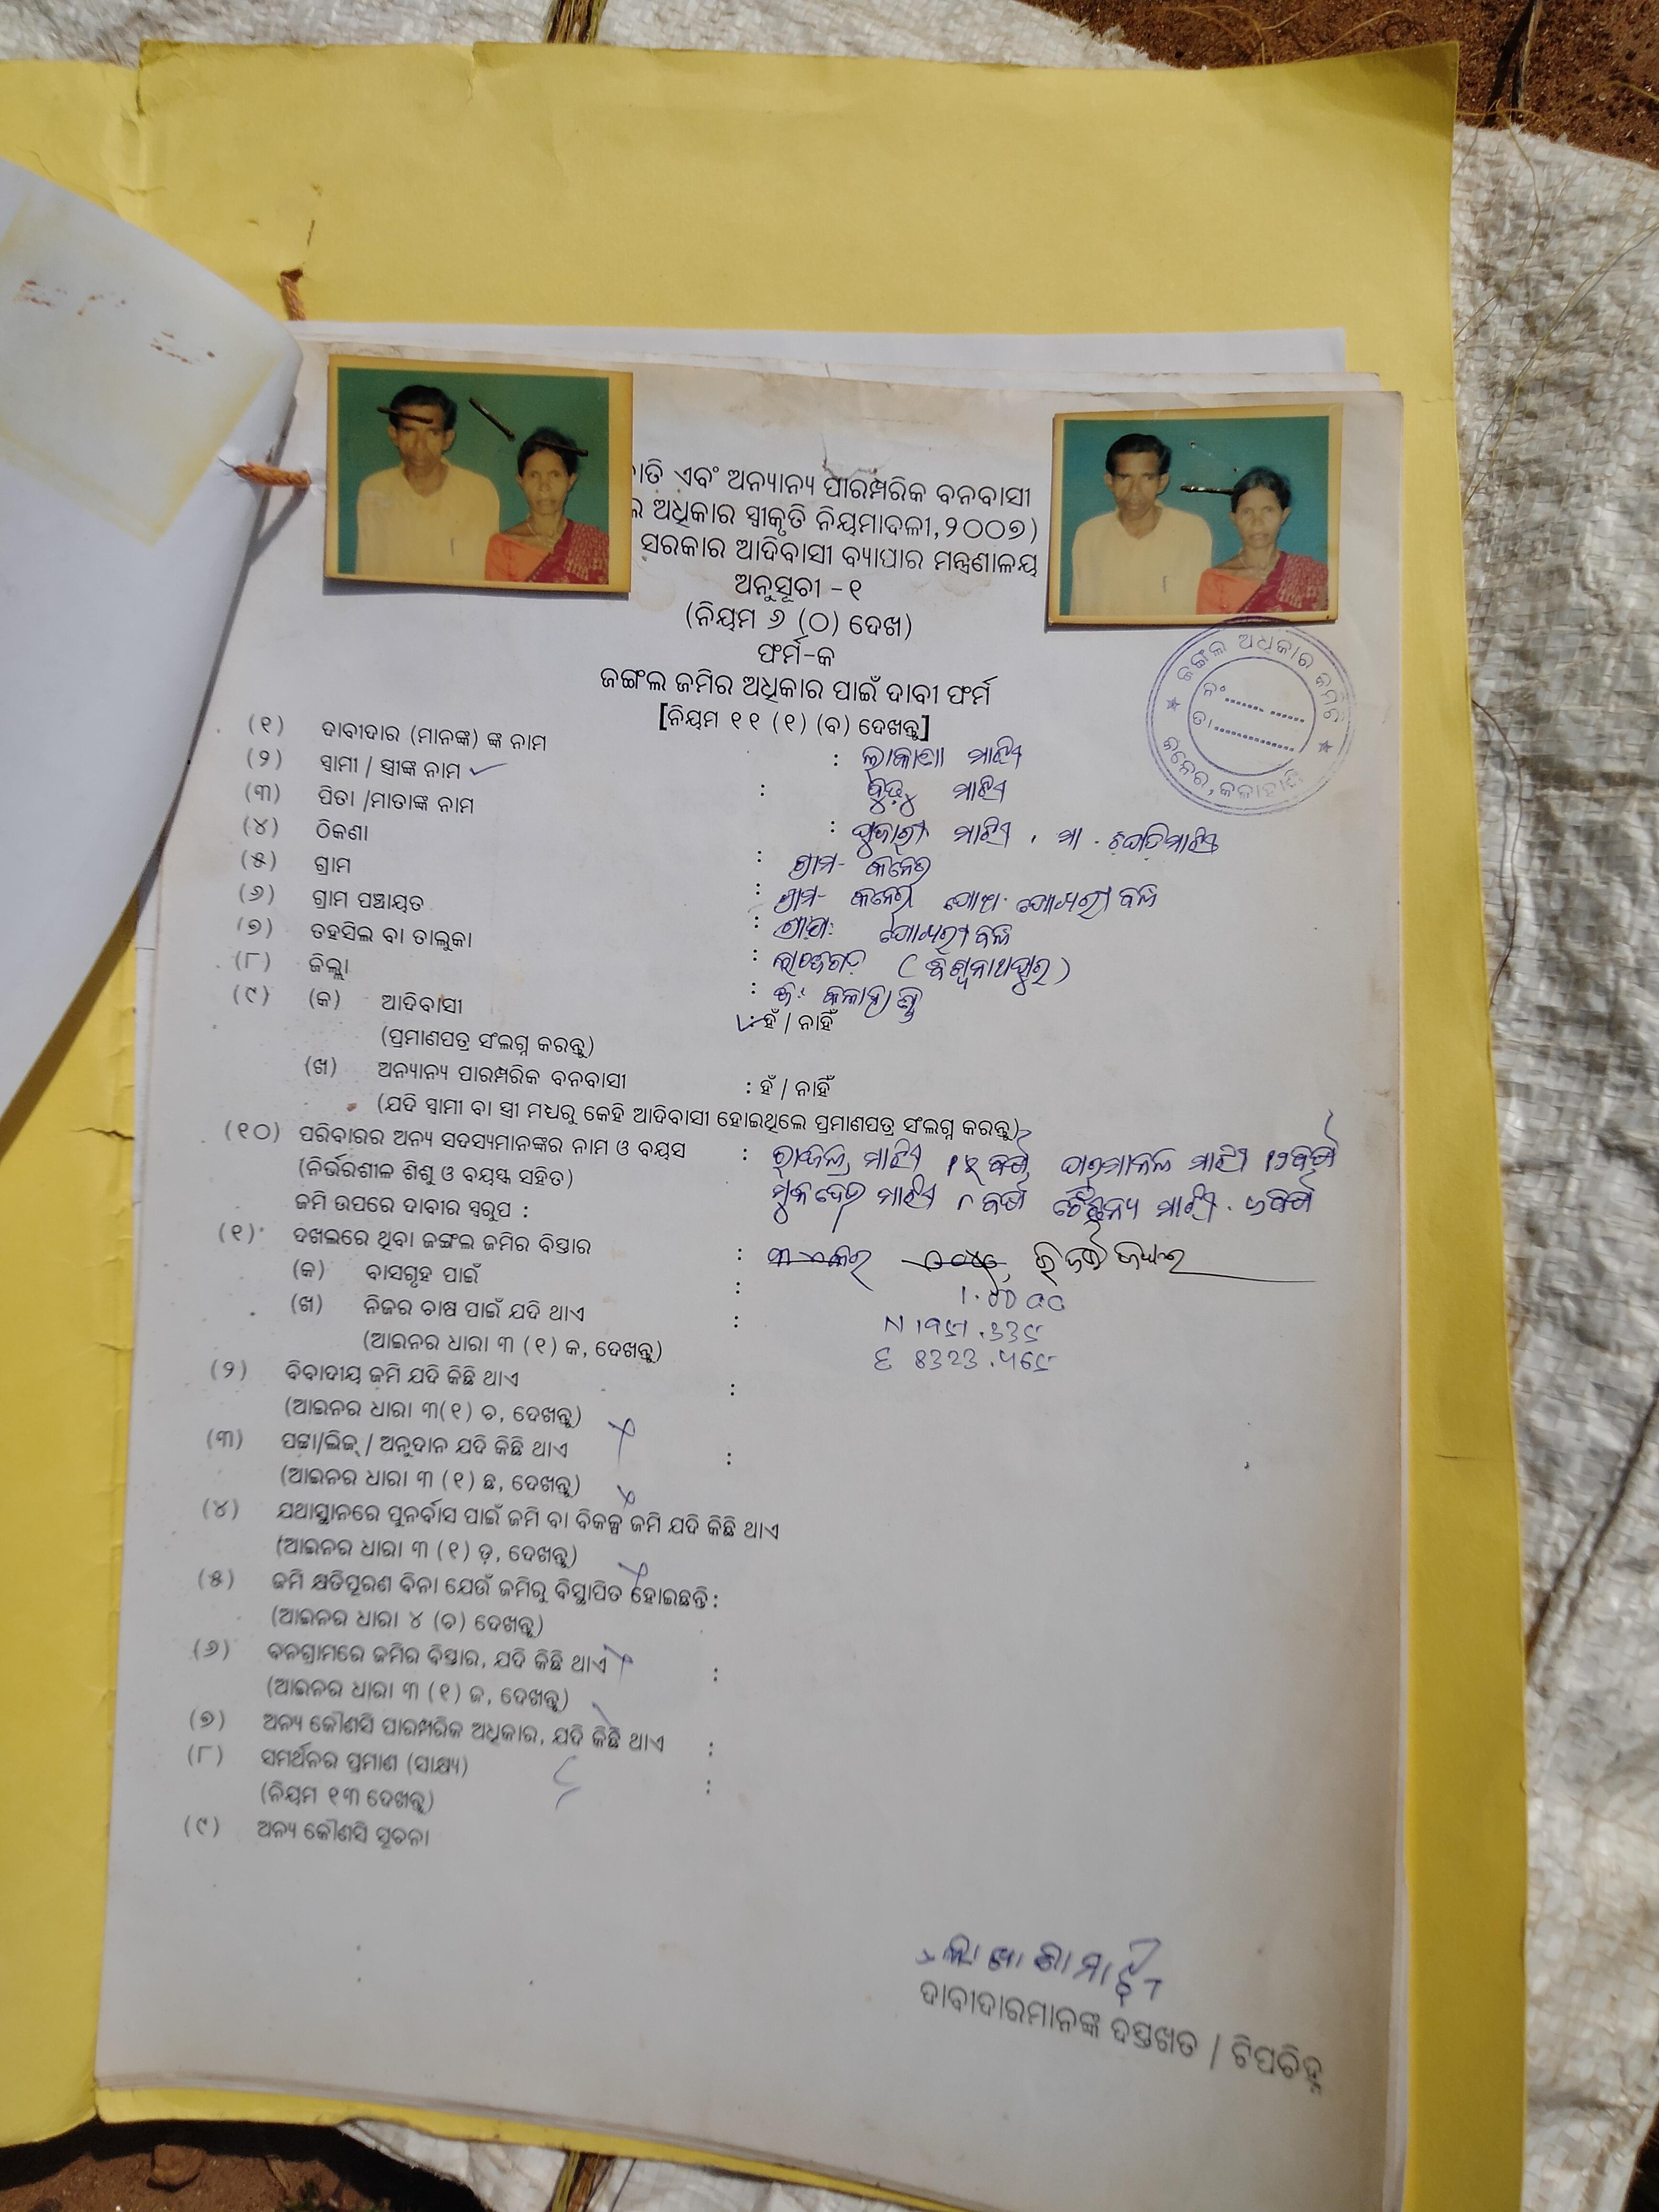 ଜାତି ଏବଂ ଅନ୍ୟାନ୍ୟ ପାରମ୍ପରିକ ବନବାସୀ
ଅଧିକାର ସ୍ୱୀକୃତି ନିୟମାବଳୀ,୨୦୦୭)
ସରକାର ଆଦିବାସୀ ବ୍ୟାପାର ମନ୍ତ୍ରଣାଳୟ
ଅନୁସୂଚୀ -୧
(ନିୟମ ୬ (୦) ଦେଖ)
ଫର୍ମ-କ
ଜଙ୍ଗଲ ଜମିର ଅଧିକାର ପାଇଁ ଦାବୀ ଫର୍ମ
[ନିୟମ ୧୧ (୧) (ବ) ଦେଖନ୍ତୁ]
ଜଙ୍ଗଲ ଅଧିକାର କମିଟି
ନଂ
ତା
କନେର, କଳାହାଣ୍ଡି
(୧) ଦାବୀଦାର (ମାନଙ୍କ) ଙ୍କ ନାମ : ମାଝି
(୨) ସ୍ୱାମୀ / ସ୍ତ୍ରୀଙ୍କ ନାମ : ମାଝି
(୩) ପିତା /ମାତାଙ୍କ ନାମ : ପୂଜାରୀ ମାଝି
(୪) ଠିକଣା : ଗ୍ରାମ- କନେର
(୫) ଗ୍ରାମ : ଗ୍ରାମ- କନେର
(୬) ଗ୍ରାମ ପଞ୍ଚାୟତ :
(୭) ତହସିଲ ବା ତାଲୁକା : ଲାଞ୍ଜିଗଡ଼ (ବିଶ୍ୱନାଥପୁର)
(୮) ଜିଲ୍ଲା : ଜି: କଳାହାଣ୍ଡି
(୯) (କ) ଆଦିବାସୀ : ହଁ / ନାହିଁ
(ପ୍ରମାଣପତ୍ର ସଂଲଗ୍ନ କରନ୍ତୁ)
(ଖ) ଅନ୍ୟାନ୍ୟ ପାରମ୍ପରିକ ବନବାସୀ : ହଁ / ନାହିଁ
(ଯଦି ସ୍ୱାମୀ ବା ସ୍ତ୍ରୀ ମଧ୍ୟରୁ କେହି ଆଦିବାସୀ ହୋଇଥିଲେ ପ୍ରମାଣପତ୍ର ସଂଲଗ୍ନ କରନ୍ତୁ)
(୧୦) ପରିବାରର ଅନ୍ୟ ସଦସ୍ୟମାନଙ୍କର ନାମ ଓ ବୟସ : ମାଝି ବର୍ଷ ମାଝି ବର୍ଷ
(ନିର୍ଭରଶୀଳ ଶିଶୁ ଓ ବୟସ୍କ ସହିତ) ମାଝି ୮ ବର୍ଷ ଚୈତନ୍ୟ ମାଝି ୬ ବର୍ଷ
ଜମି ଉପରେ ଦାବୀର ସ୍ୱରୂପ :
(୧) ଦଖଲରେ ଥିବା ଜଙ୍ଗଲ ଜମିର ବିସ୍ତାର :
(କ) ବାସଗୃହ ପାଇଁ :
(ଖ) ନିଜର ଚାଷ ପାଇଁ ଯଦି ଥାଏ :
(ଆଇନର ଧାରା ୩ (୧) କ, ଦେଖନ୍ତୁ)
(୨) ବିବାଦୀୟ ଜମି ଯଦି କିଛି ଥାଏ :
(ଆଇନର ଧାରା ୩(୧) ଚ, ଦେଖନ୍ତୁ)
(୩) ପଟ୍ଟା/ଲିଜ୍ / ଅନୁଦାନ ଯଦି କିଛି ଥାଏ :
(ଆଇନର ଧାରା ୩ (୧) ଛ, ଦେଖନ୍ତୁ)
(୪) ଯଥାସ୍ଥାନରେ ପୁନର୍ବାସ ପାଇଁ ଜମି ବା ବିକଳ୍ପ ଜମି ଯଦି କିଛି ଥାଏ
(ଆଇନର ଧାରା ୩ (୧) ଡ଼, ଦେଖନ୍ତୁ)
(୫) ଜମି କ୍ଷତିପୂରଣ ବିନା ଯେଉଁ ଜମିରୁ ବିସ୍ଥାପିତ ହୋଇଛନ୍ତି :
(ଆଇନର ଧାରା ୪ (ଚ) ଦେଖନ୍ତୁ)
(୬) ବନଗ୍ରାମରେ ଜମିର ବିସ୍ତାର, ଯଦି କିଛି ଥାଏ :
(ଆଇନର ଧାରା ୩ (୧) ଜ, ଦେଖନ୍ତୁ)
(୭) ଅନ୍ୟ କୌଣସି ପାରମ୍ପରିକ ଅଧିକାର, ଯଦି କିଛି ଥାଏ :
(୮) ସମର୍ଥନର ପ୍ରମାଣ (ସାକ୍ଷ୍ୟ) :
(ନିୟମ ୧୩ ଦେଖନ୍ତୁ)
(୯) ଅନ୍ୟ କୌଣସି ସୂଚନା
ଦାବୀଦାରମାନଙ୍କ ଦସ୍ତଖତ / ଟିପଚିହ୍ନ